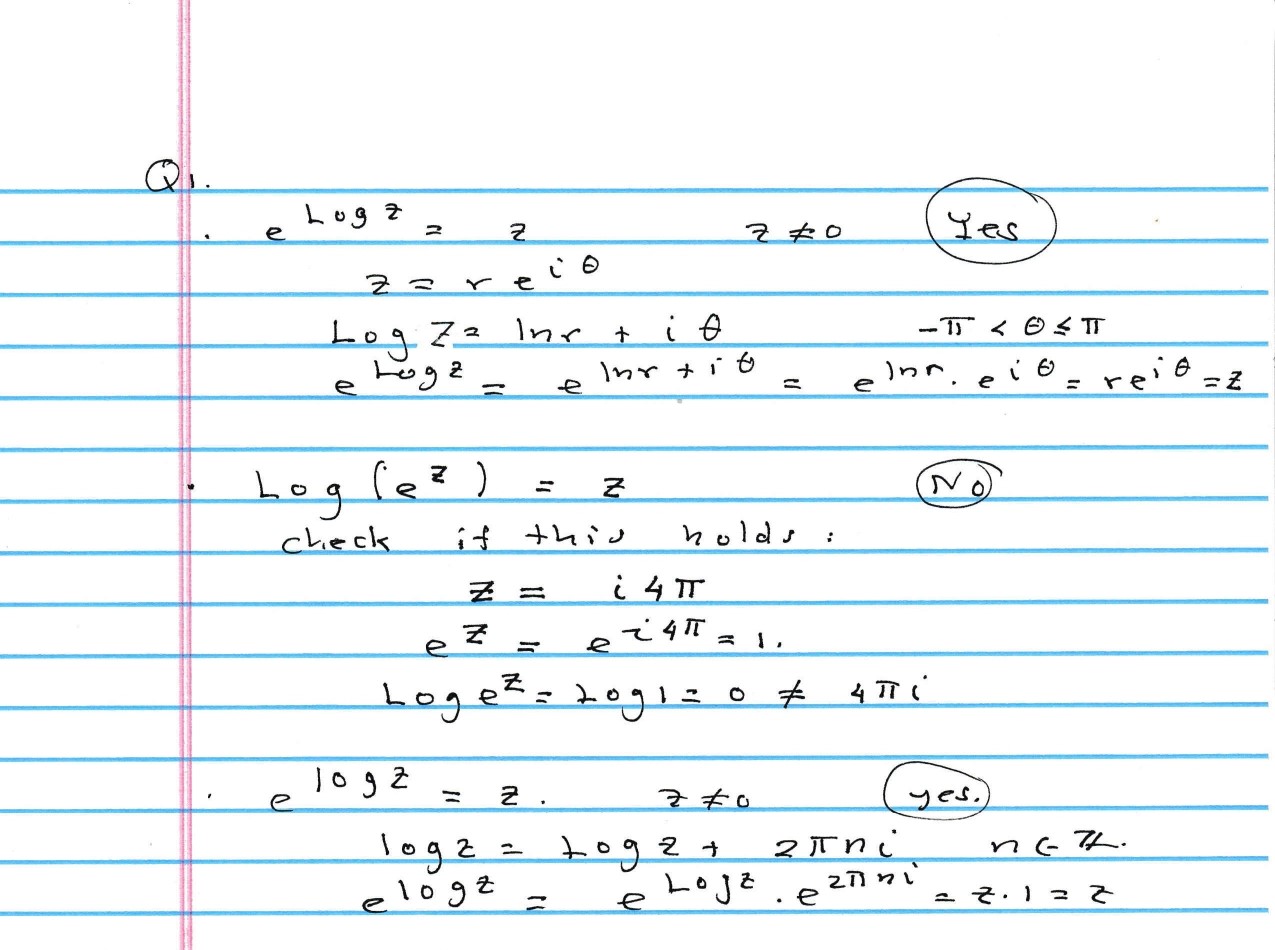 Q1.
. e^{Log z} = z z ≠ 0 Yes
z = r e^{iθ}
Log z = ln r + i θ -π < θ ≤ π
e^{Log z} = e^{ln r + iθ} = e^{ln r} . e^{iθ} = r e^{iθ} = z
. Log (e^z) = z No
check if this holds :
z = i 4 π
e^z = e^{i4π} = 1.
Log e^z = Log 1 = 0 ≠ 4 π i
. e^{log z} = z . z ≠ 0 yes.
log z = Log z + 2 π n i n ∈ ℤ.
e^{log z} = e^{Log z} . e^{2πni} = z . 1 = z